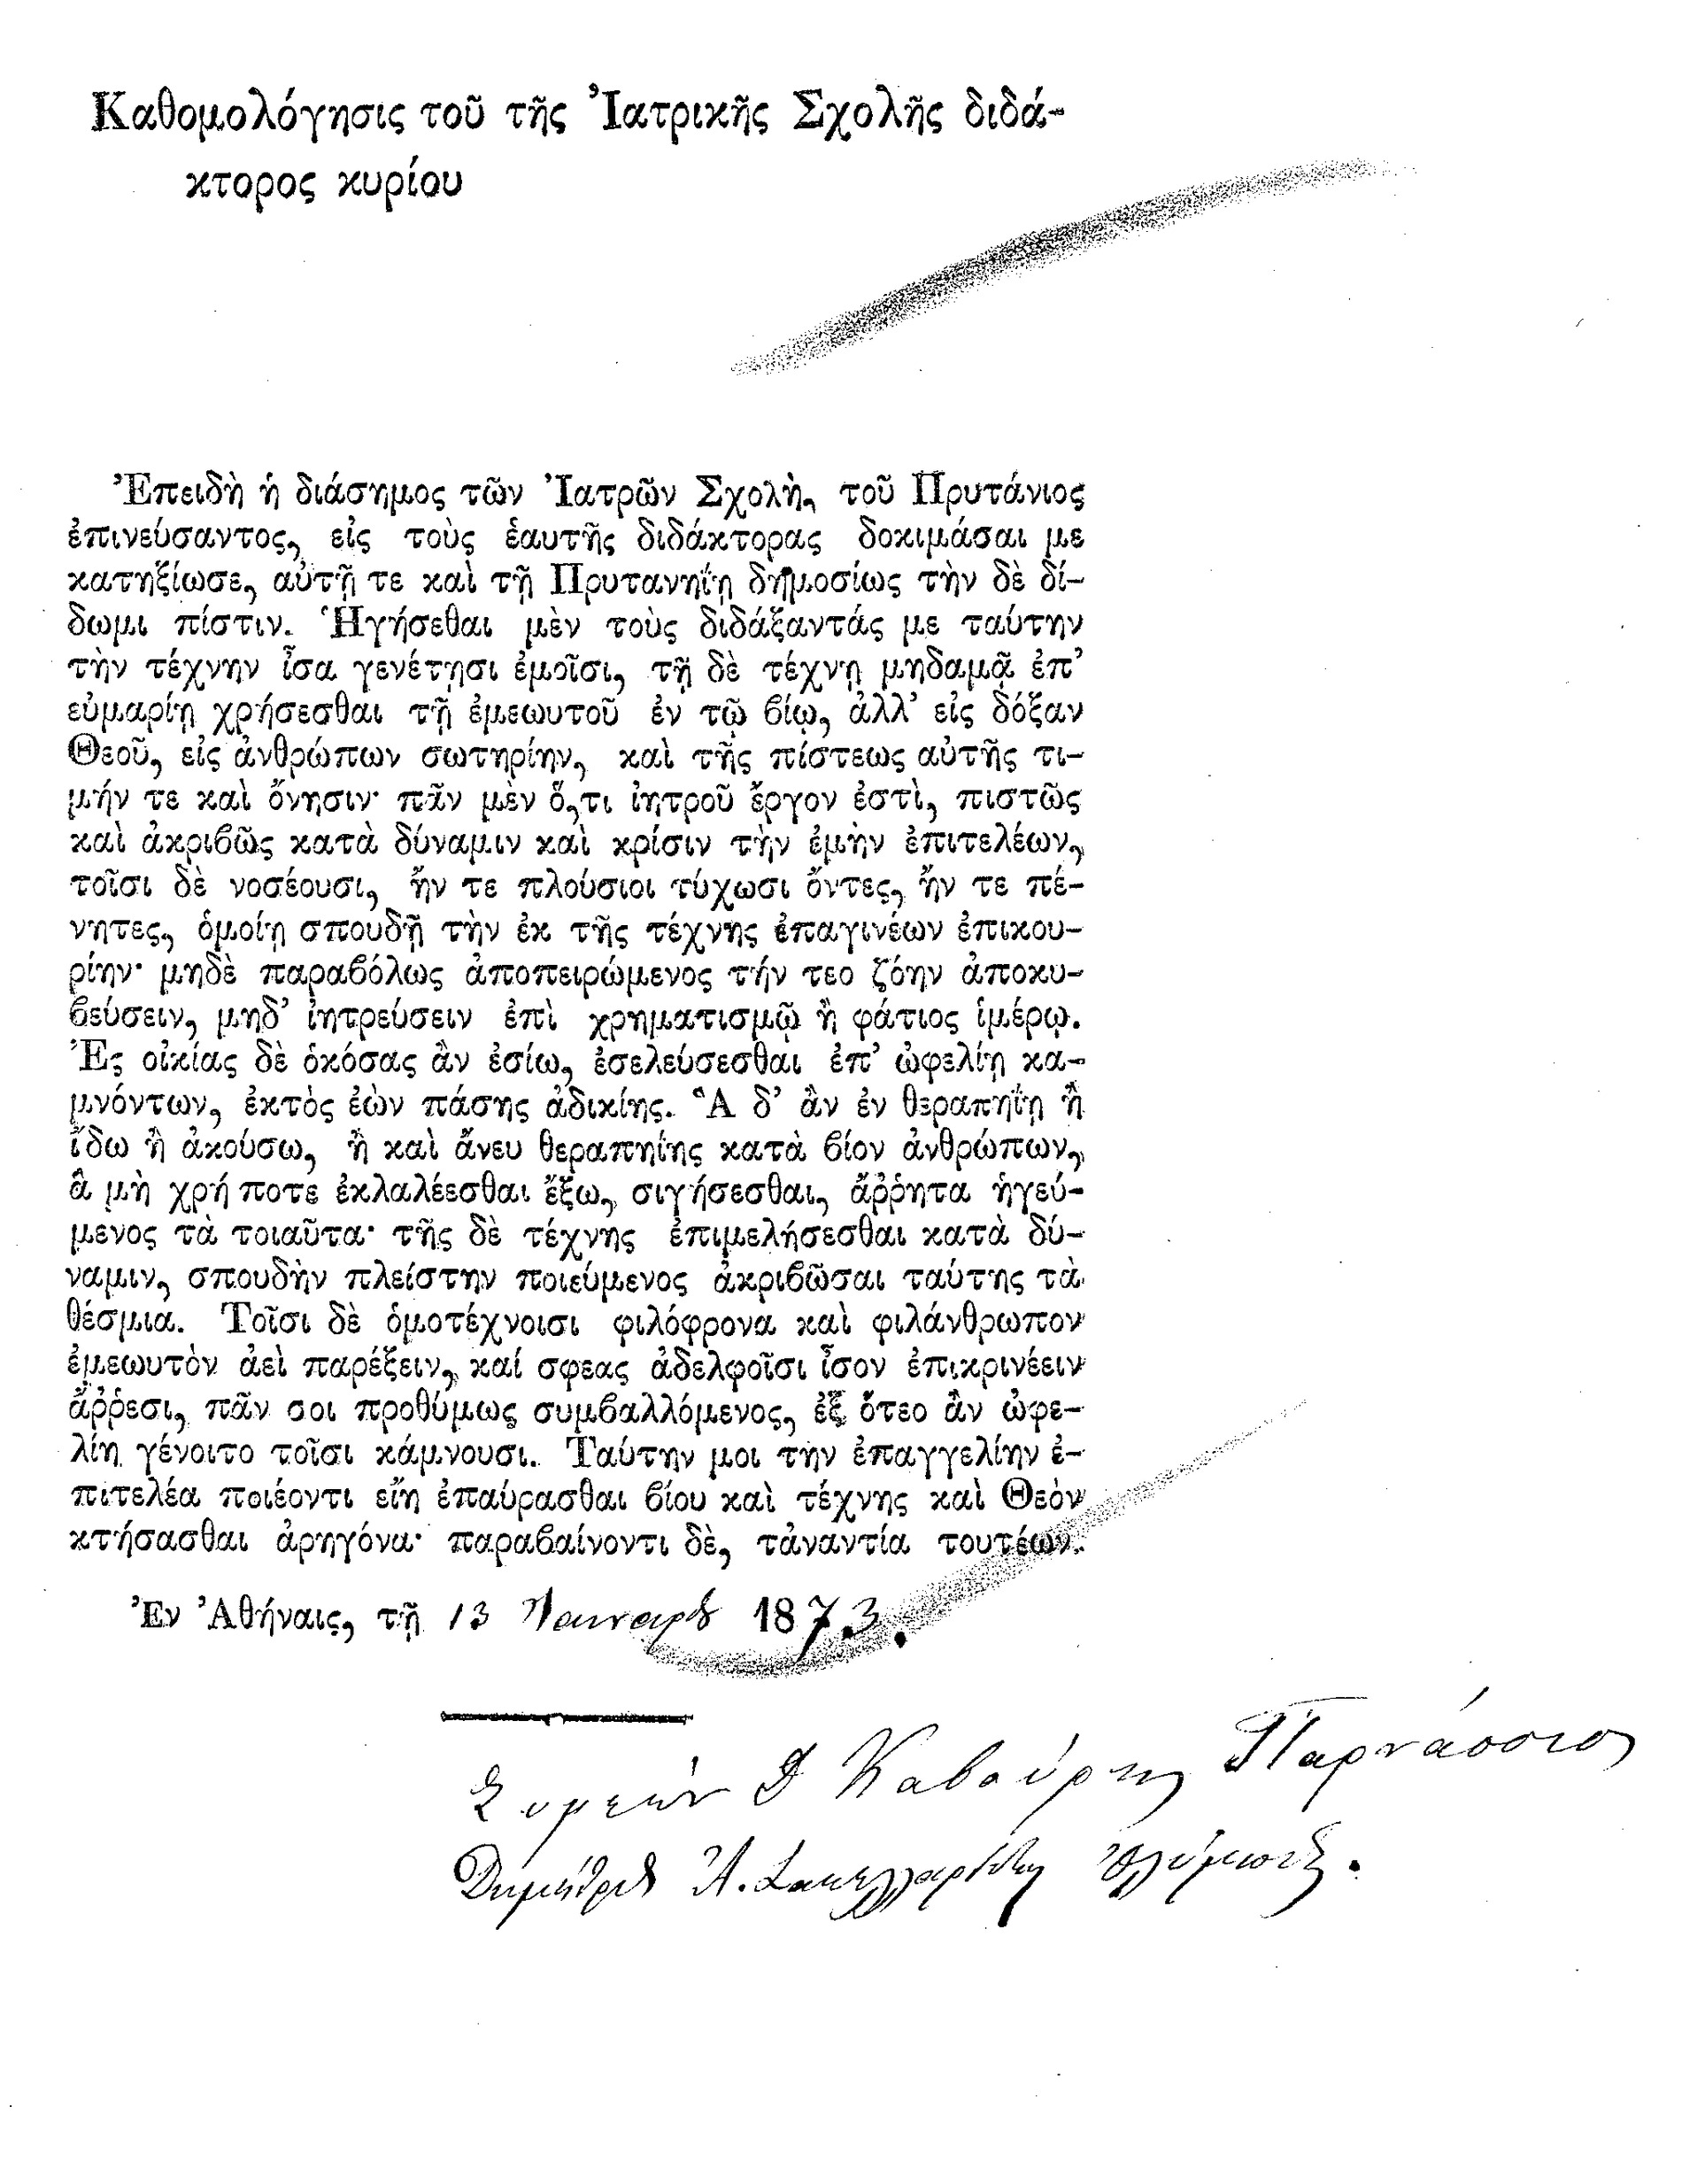 Καθομολόγησις τοῦ τῆς Ἰατρικῆς Σχολῆς διδά-
κτορος κυρίου
Ἐπειδὴ ἡ διάσημος τῶν Ἰατρῶν Σχολὴ, τοῦ Πρυτάνιος
ἐπινεύσαντος, εἰς τοὺς ἑαυτῆς διδάκτορας δοκιμάσαι με
κατηξίωσε, αὐτῇ τε καὶ τῇ Πρυτανηΐῃ δημοσίως τὴν δὲ δί-
δωμι πίστιν. Ἡγήσεθαι μὲν τοὺς διδάξαντάς με ταύτην
τὴν τέχνην ἶσα γενέτῃσι ἐμοῖσι, τῇ δὲ τέχνῃ μηδαμᾷ ἐπ’
εὐμαρίῃ χρήσεσθαι τῇ ἐμεωυτοῦ ἐν τῷ βίῳ, ἀλλ’ εἰς δόξαν
Θεοῦ, εἰς ἀνθρώπων σωτηρίην, καὶ τῆς πίστεως αὐτῆς τι-
μήν τε καὶ ὄνησιν· πᾶν μὲν ὅ,τι ἰητροῦ ἔργον ἐστὶ, πιστῶς
καὶ ἀκριβῶς κατὰ δύναμιν καὶ κρίσιν τὴν ἐμὴν ἐπιτελέων,
τοῖσι δὲ νοσέουσι, ἤν τε πλούσιοι τύχωσι ὄντες, ἤν τε πέ-
νητες, ὁμοίῃ σπουδῇ τὴν ἐκ τῆς τέχνης ἐπαγινέων ἐπικου-
ρίην· μηδὲ παραβόλως ἀποπειρώμενος τήν τεο ζόην ἀποκυ-
βεύσειν, μηδ’ ἰητρεύσειν ἐπὶ χρηματισμῷ ἢ φάτιος ἱμέρῳ.
Ἐς οἰκίας δὲ ὁκόσας ἂν ἐσίω, ἐσελεύσεσθαι ἐπ’ ὠφελίῃ κα-
μνόντων, ἐκτὸς ἐὼν πάσης ἀδικίης. Ἃ δ’ ἂν ἐν θεραπηΐῃ ἢ
ἴδω ἢ ἀκούσω, ἢ καὶ ἄνευ θεραπηίης κατὰ βίον ἀνθρώπων,
ἃ μὴ χρή ποτε ἐκλαλέεσθαι ἔξω, σιγήσεσθαι, ἄῤῥητα ἡγεύ-
μενος τὰ τοιαῦτα· τῆς δὲ τέχνης ἐπιμελήσεσθαι κατὰ δύ-
ναμιν, σπουδὴν πλείστην ποιεύμενος ἀκριβῶσαι ταύτης τὰ
θέσμια. Τοῖσι δὲ ὁμοτέχνοισι φιλόφρονα καὶ φιλάνθρωπον
ἐμεωυτὸν ἀεὶ παρέξειν, καί σφεας ἀδελφοῖσι ἶσον ἐπικρινέειν
ἄῤῥεσι, πᾶν σοι προθύμως συμβαλλόμενος, ἐξ ὅτεο ἂν ὠφε-
λίη γένοιτο τοῖσι κάμνουσι. Ταύτην μοι τὴν ἐπαγγελίην ἐ-
πιτελέα ποιέοντι εἴη ἐπαύρασθαι βίου καὶ τέχνης καὶ Θεὸν
κτήσασθαι ἀρηγόνα· παραβαίνοντι δὲ, τἀναντία τουτέων.
Ἐν Ἀθήναις, τῇ 13 Ἰανουαρίου 1873.
Συμεὼν Δ Καβούρης Παρνάσσιος
Δημήτριος Ἀ. Σακελλαρίδης